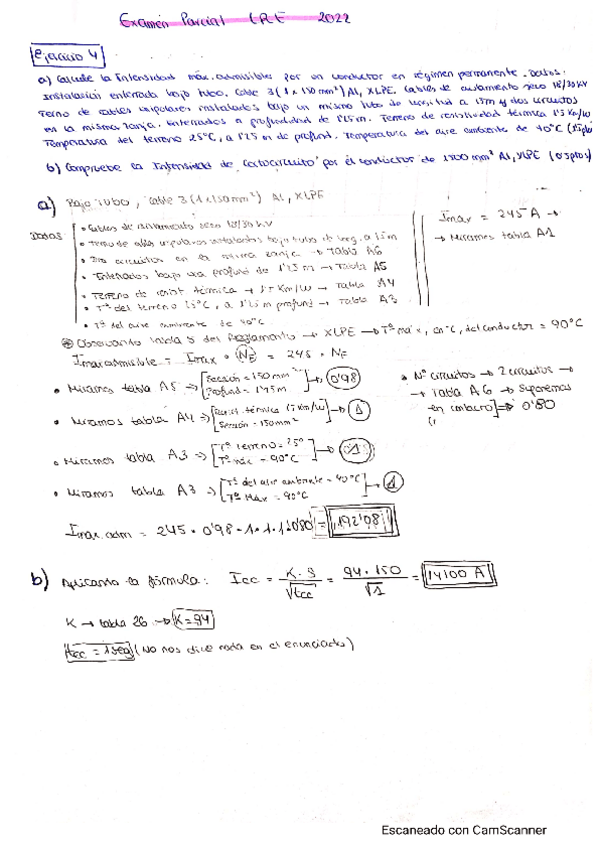 Examen Parcial LRE 2022
Ejercicio 4
a) Calcule la Intensidad máx. admisible por un conductor en régimen permanente. Datos:
Instalación enterrada bajo tubo. Cable 3(1x150 mm²) Al, XLPE. Cables de aislamiento seco 18/30 kV
Terno de cables unipolares instalados bajo un mismo tubo de longitud a 15m y dos circuitos
en la misma zanja. Enterrados a profundidad de 1'25m. Terreno de resistividad térmica 1'5 Km/W
Temperatura del terreno 25°C, a 1'25 m de profund. Temperatura del aire ambiente de 40°C
b) Compruebe la Intensidad de Cortocircuito por el conductor de mm² Al, XLPE (0'5ptos)
a) Bajo Tubo, Cable 3(1x150mm²) Al, XLPE
Datos
• Cables de aislamiento seco 18/30 kV
• Terno de cables unipolares instalados bajo tubo de long. a 15m
• Dos circuitos en la misma zanja → Tabla A6
• Enterrados bajo una profund de 1'25m → Tabla A5
• Terreno de resist térmica → 1'5 Km/W → Tabla A4
• Tª del terreno 25°C, a 1'25m profund → Tabla A3
• Tª del aire ambiente de 40°C
Imax = 245 A →
→ Miramos tabla A1
Observando tabla 5 del Reglamento → XLPE → Tª máx, en °C, del conductor = 90°C
Imax admisible = Imax · NF = 245 · NF
• Miramos tabla A5 ⇒ [Sección = 150mm² Profund = 1'25m] → 0'98
• Miramos tabla A4 ⇒ [Resist. térmica Sección = 150mm²] → 1
• Miramos tabla A3 ⇒ [Tª terreno = 25° Tª máx = 90°C] → 1
• Miramos tabla A3 ⇒ [Tª del aire ambiente = 40°C Tª Máx = 90°C] → 1
• Nº circuitos → 2 circuitos →
→ Tabla A6 → Suponemos
en contacto] ⇒ 0'80
Imax.adm = 245 · 0'98 · 1 · 1 · 1 · 0'80 = 192'08
b) Aplicando la fórmula: Icc = K · S / √tcc = 94 · 150 / √1 = 14100 A
K → tabla 26 → K = 94
tcc = 1seg (No nos dice nada en el enunciado)
Escaneado con CamScanner